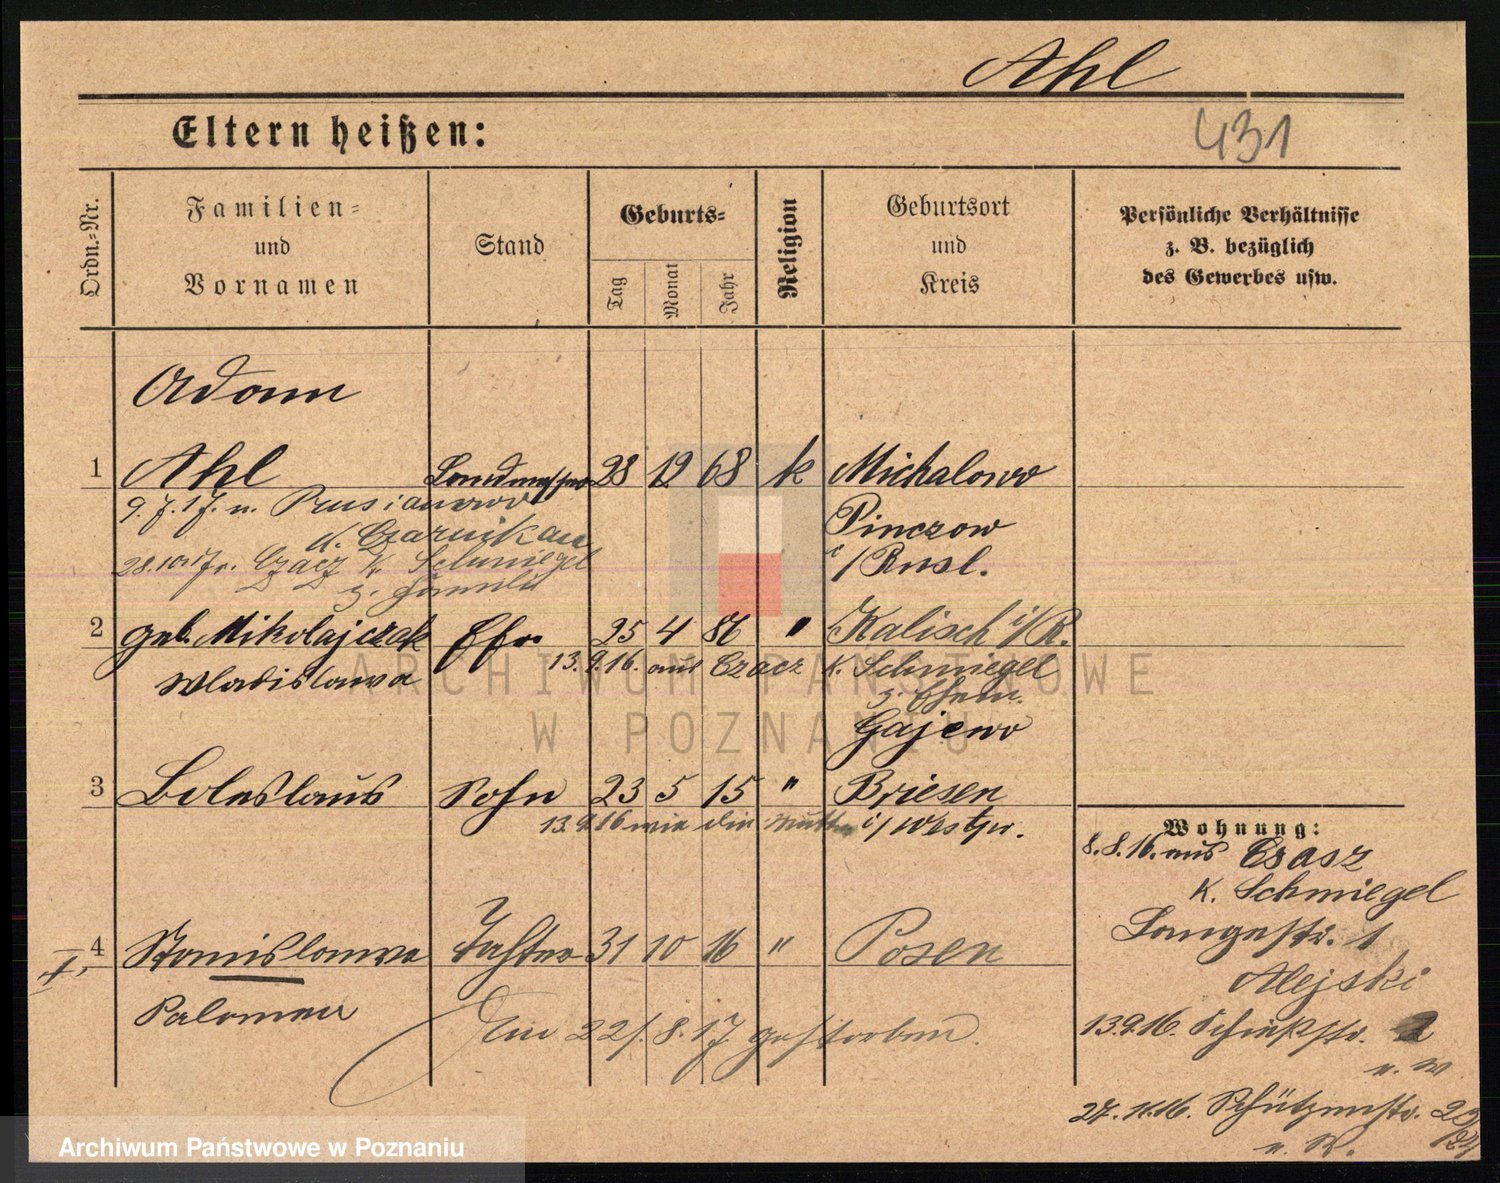 Ahl
Eltern heißen:
431
Ordn.-Nr.
Familien=
und
Vornamen
Stand
Geburts=
Tag
Monat
Jahr
Religion
Geburtsort
und
Kreis
Persönliche Verhältnisse
z. B. bezüglich
des Gewerbes usw.
Adam
1 Ahl Landmesser 28 12 68 k Michalowo
9.7.17. n. Prusianowo
Pinczow
d. Czarnikau
i/Rusl.
28.10.17 Czacz K. Schmiegel
z. Familie
2 geb. Mikolajczak Efr. 25 4 86 " Kalisch i/R.
13.9.16. aus Czacz K. Schmiegel
Wladislawa
z. Ehem.
Gajewo
3 Boleslaus Sohn 23 5 15 " Briesen
13.9.16 wie die Mutter i/Westpr.
Wohnung:
8.8.16. aus Czasz
K. Schmiegel
Langestr. 1
4 Stanislawa Tochter 31 10 16 " Posen
Alejski
Salomea
Am 22/.8.17 gestorben.
13.9.16. 2
n. W
27.11.16. Schützenstr. 23/24
ARCHIWUM PAŃSTWOWE
W POZNANIU
Archiwum Państwowe w Poznaniu